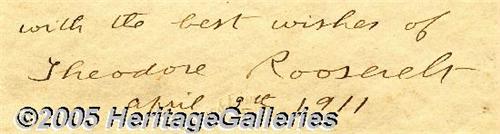 with the best wishes of
Theodore Roosevelt
April 9th 1911
©2005 HeritageGalleries